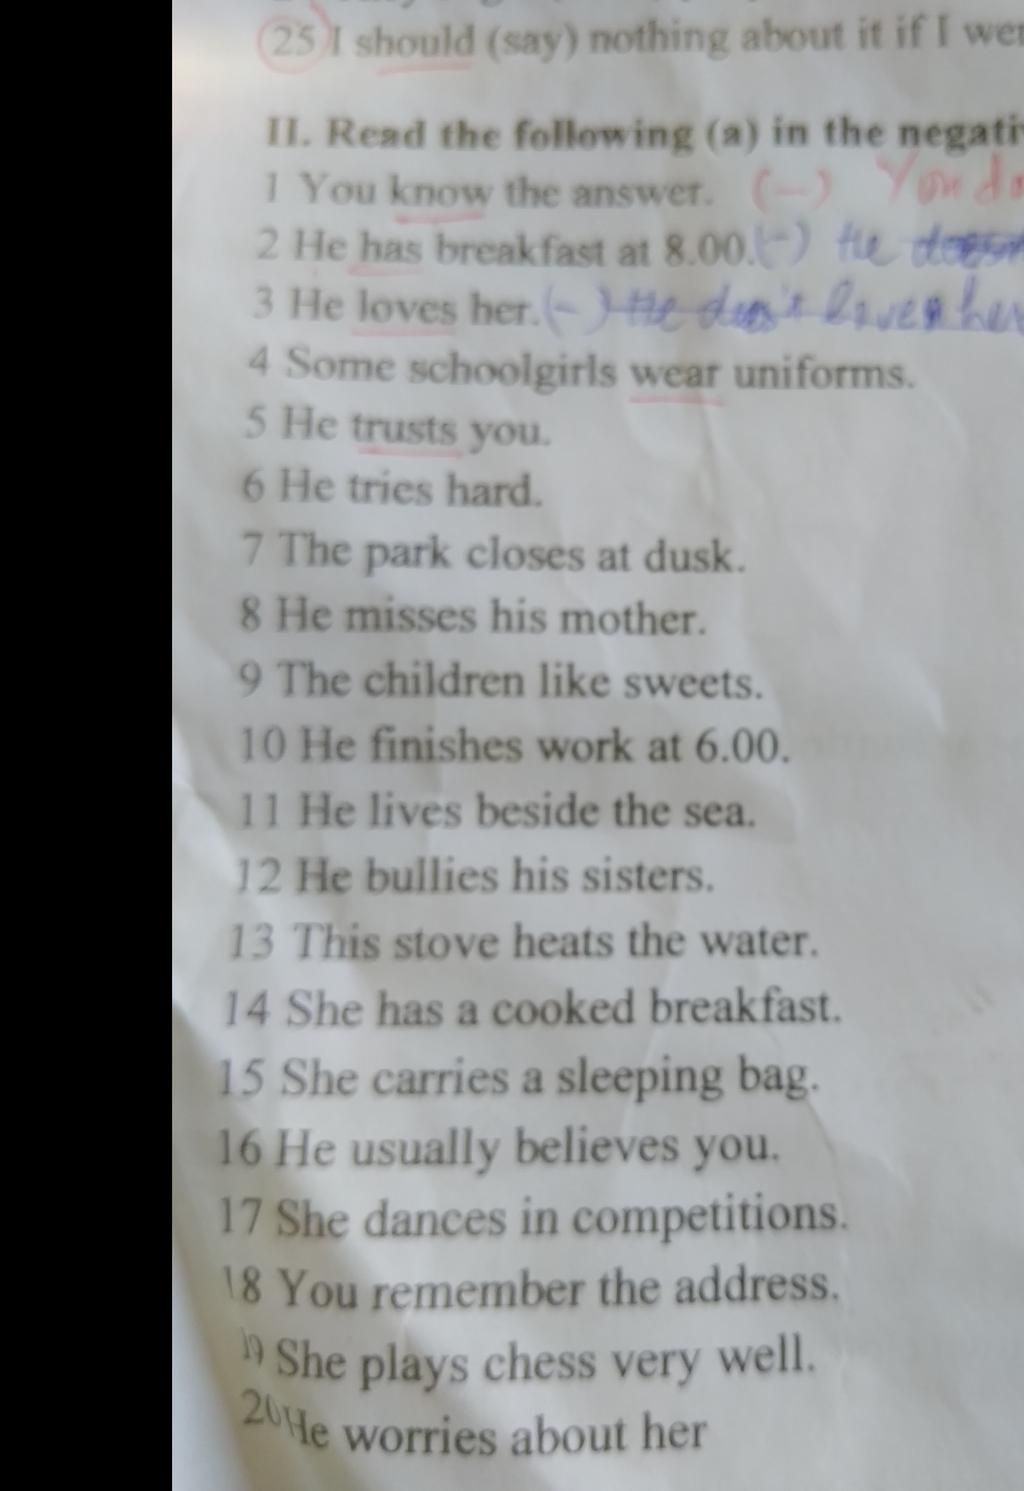 25 I should (say) nothing about it if I wer
II. Read the following (a) in the negati
1 You know the answer. (-) You do
2 He has breakfast at 8.00. (-) He
3 He loves her. (-) He don't loves her
4 Some schoolgirls wear uniforms.
5 He trusts you.
6 He tries hard.
7 The park closes at dusk.
8 He misses his mother.
9 The children like sweets.
10 He finishes work at 6.00.
11 He lives beside the sea.
12 He bullies his sisters.
13 This stove heats the water.
14 She has a cooked breakfast.
15 She carries a sleeping bag.
16 He usually believes you.
17 She dances in competitions.
18 You remember the address.
19 She plays chess very well.
20 He worries about her